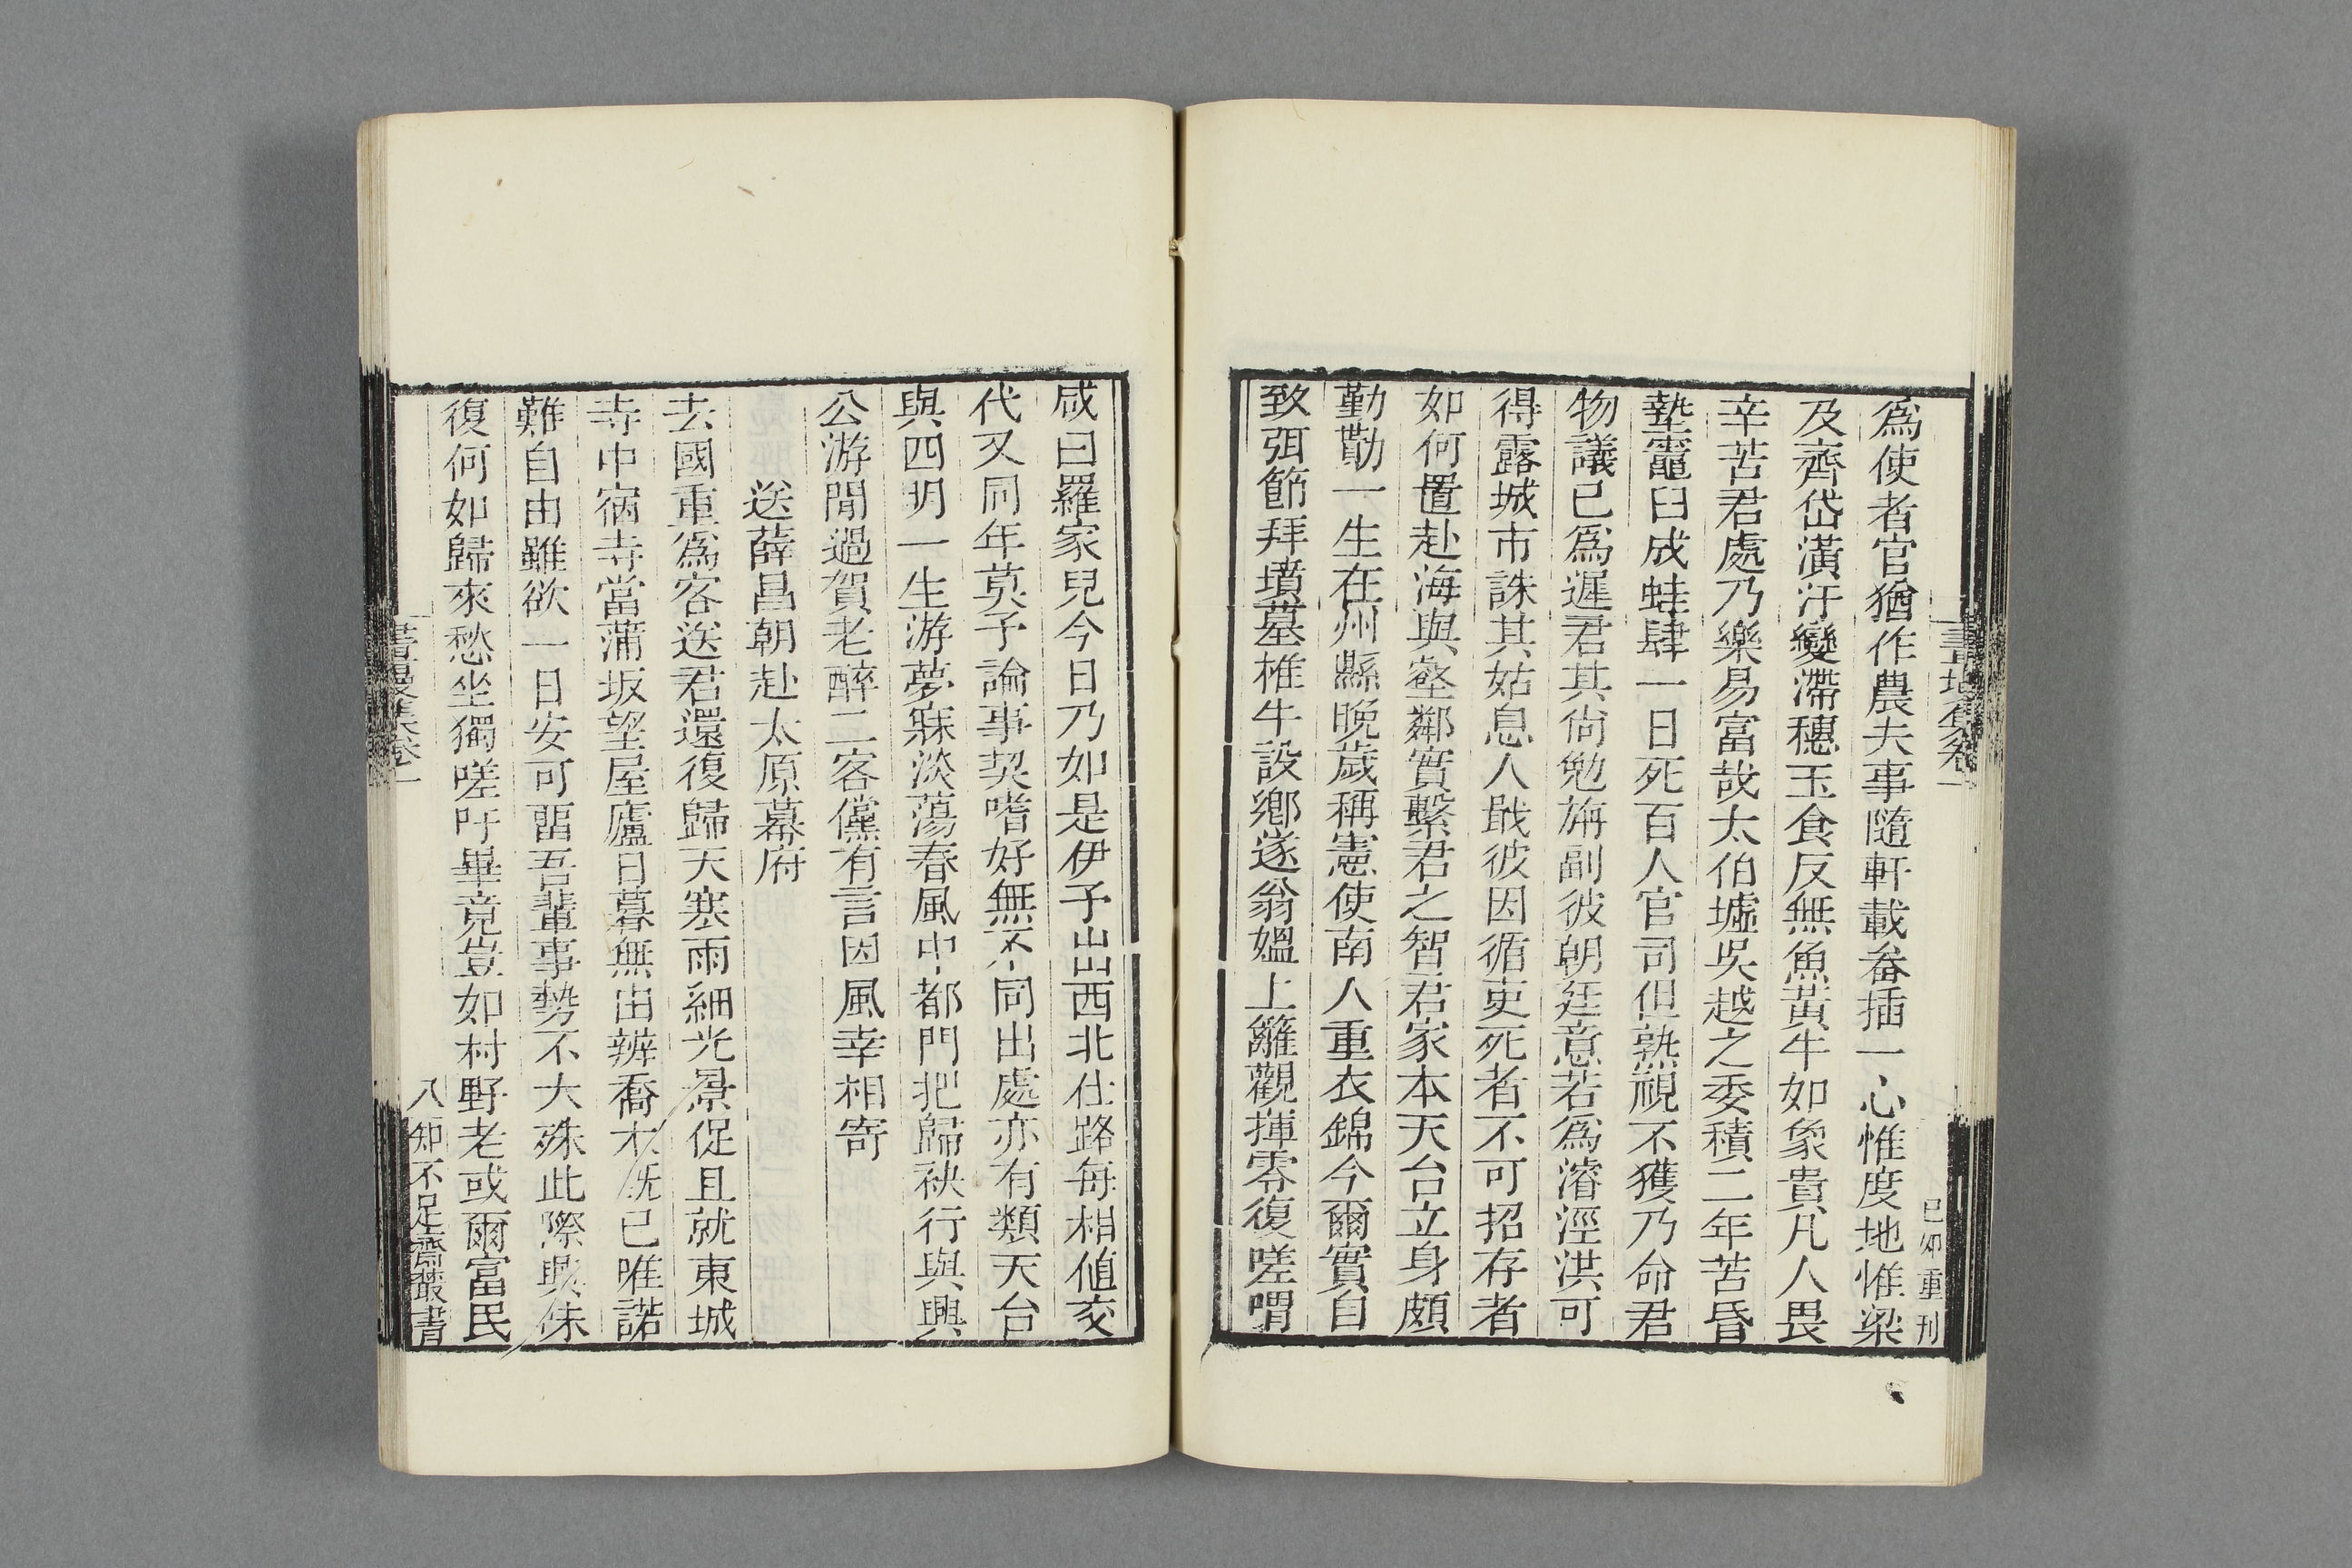 己卯重刊
爲使者官猶作農夫事隨軒載畚插一心惟度地惟梁
及齊岱潢汙變滯穗玉食反無魚黃牛如象貴凡人畏
辛苦君處乃樂易富哉太伯墟吳越之委積二年苦昏
墊竈臼成蛙肆一日死百人官司但熟視不獲乃命君
物議已爲遲君其尙勉旃副彼朝廷意若爲濬溼洪可
得露城市誅其姑息人戢彼因循吏死者不可招存者
如何置赴海與壑鄰實繫君之智君家本天台立身頗
勤勩一生在州縣晚歲稱憲使南人重衣錦今爾實自
致弭節拜墳墓椎牛設鄉遂翁媼上籬觀揮零復嗟喟
咸曰羅家兒今日乃如是伊予山西北仕路每相值交
代又同年莫予論事契嗜好無不同出處亦有類天台
與四明一生游夢寐淡蕩春風中都門把歸袂行與興
公游閒過賀老醉二客儻有言因風幸相寄
送薛昌朝赴太原幕府
去國重爲客送君還復歸天寒雨細光景促且就東城
寺中宿寺當蒲坂望屋廬日暮無由辨喬木旣已唯諾
難自由雖欲一日安可畱吾輩事勢不大殊此際興味
復何如歸來愁坐獨嗟吁畢竟豈如村野老或爾富民
八 知不足齋叢書